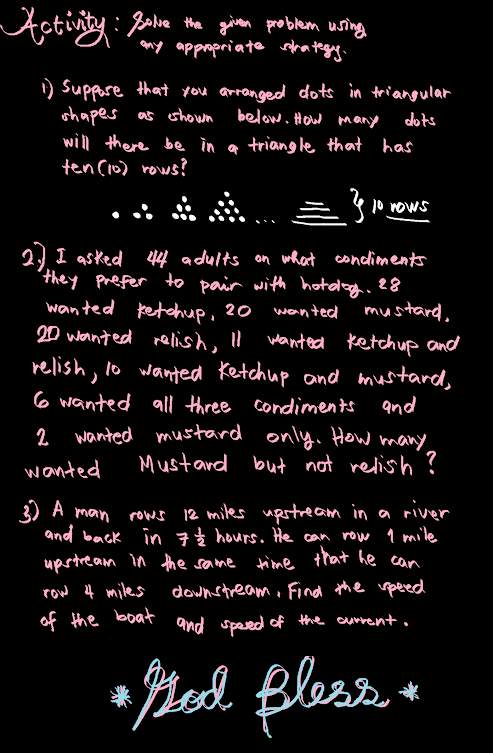 Activity: Solve the given problem using
any appropriate strategy.
1) Suppose that you arranged dots in triangular
shapes as shown below. How many dots
will there be in a triangle that has
ten (10) rows?
... } 10 rows
2.) I asked 44 adults on what condiments
they prefer to pair with hotdog. 28
wanted ketchup, 20 wanted mustard,
20 wanted relish, 11 wanted ketchup and
relish, 10 wanted ketchup and mustard,
6 wanted all three condiments and
2 wanted mustard only. How many
wanted Mustard but not relish?
3) A man rows 12 miles upstream in a river
and back in 7 1/2 hours. He can row 1 mile
upstream in the same time that he can
row 4 miles downstream. Find the speed
of the boat and speed of the current.
* God Bless *